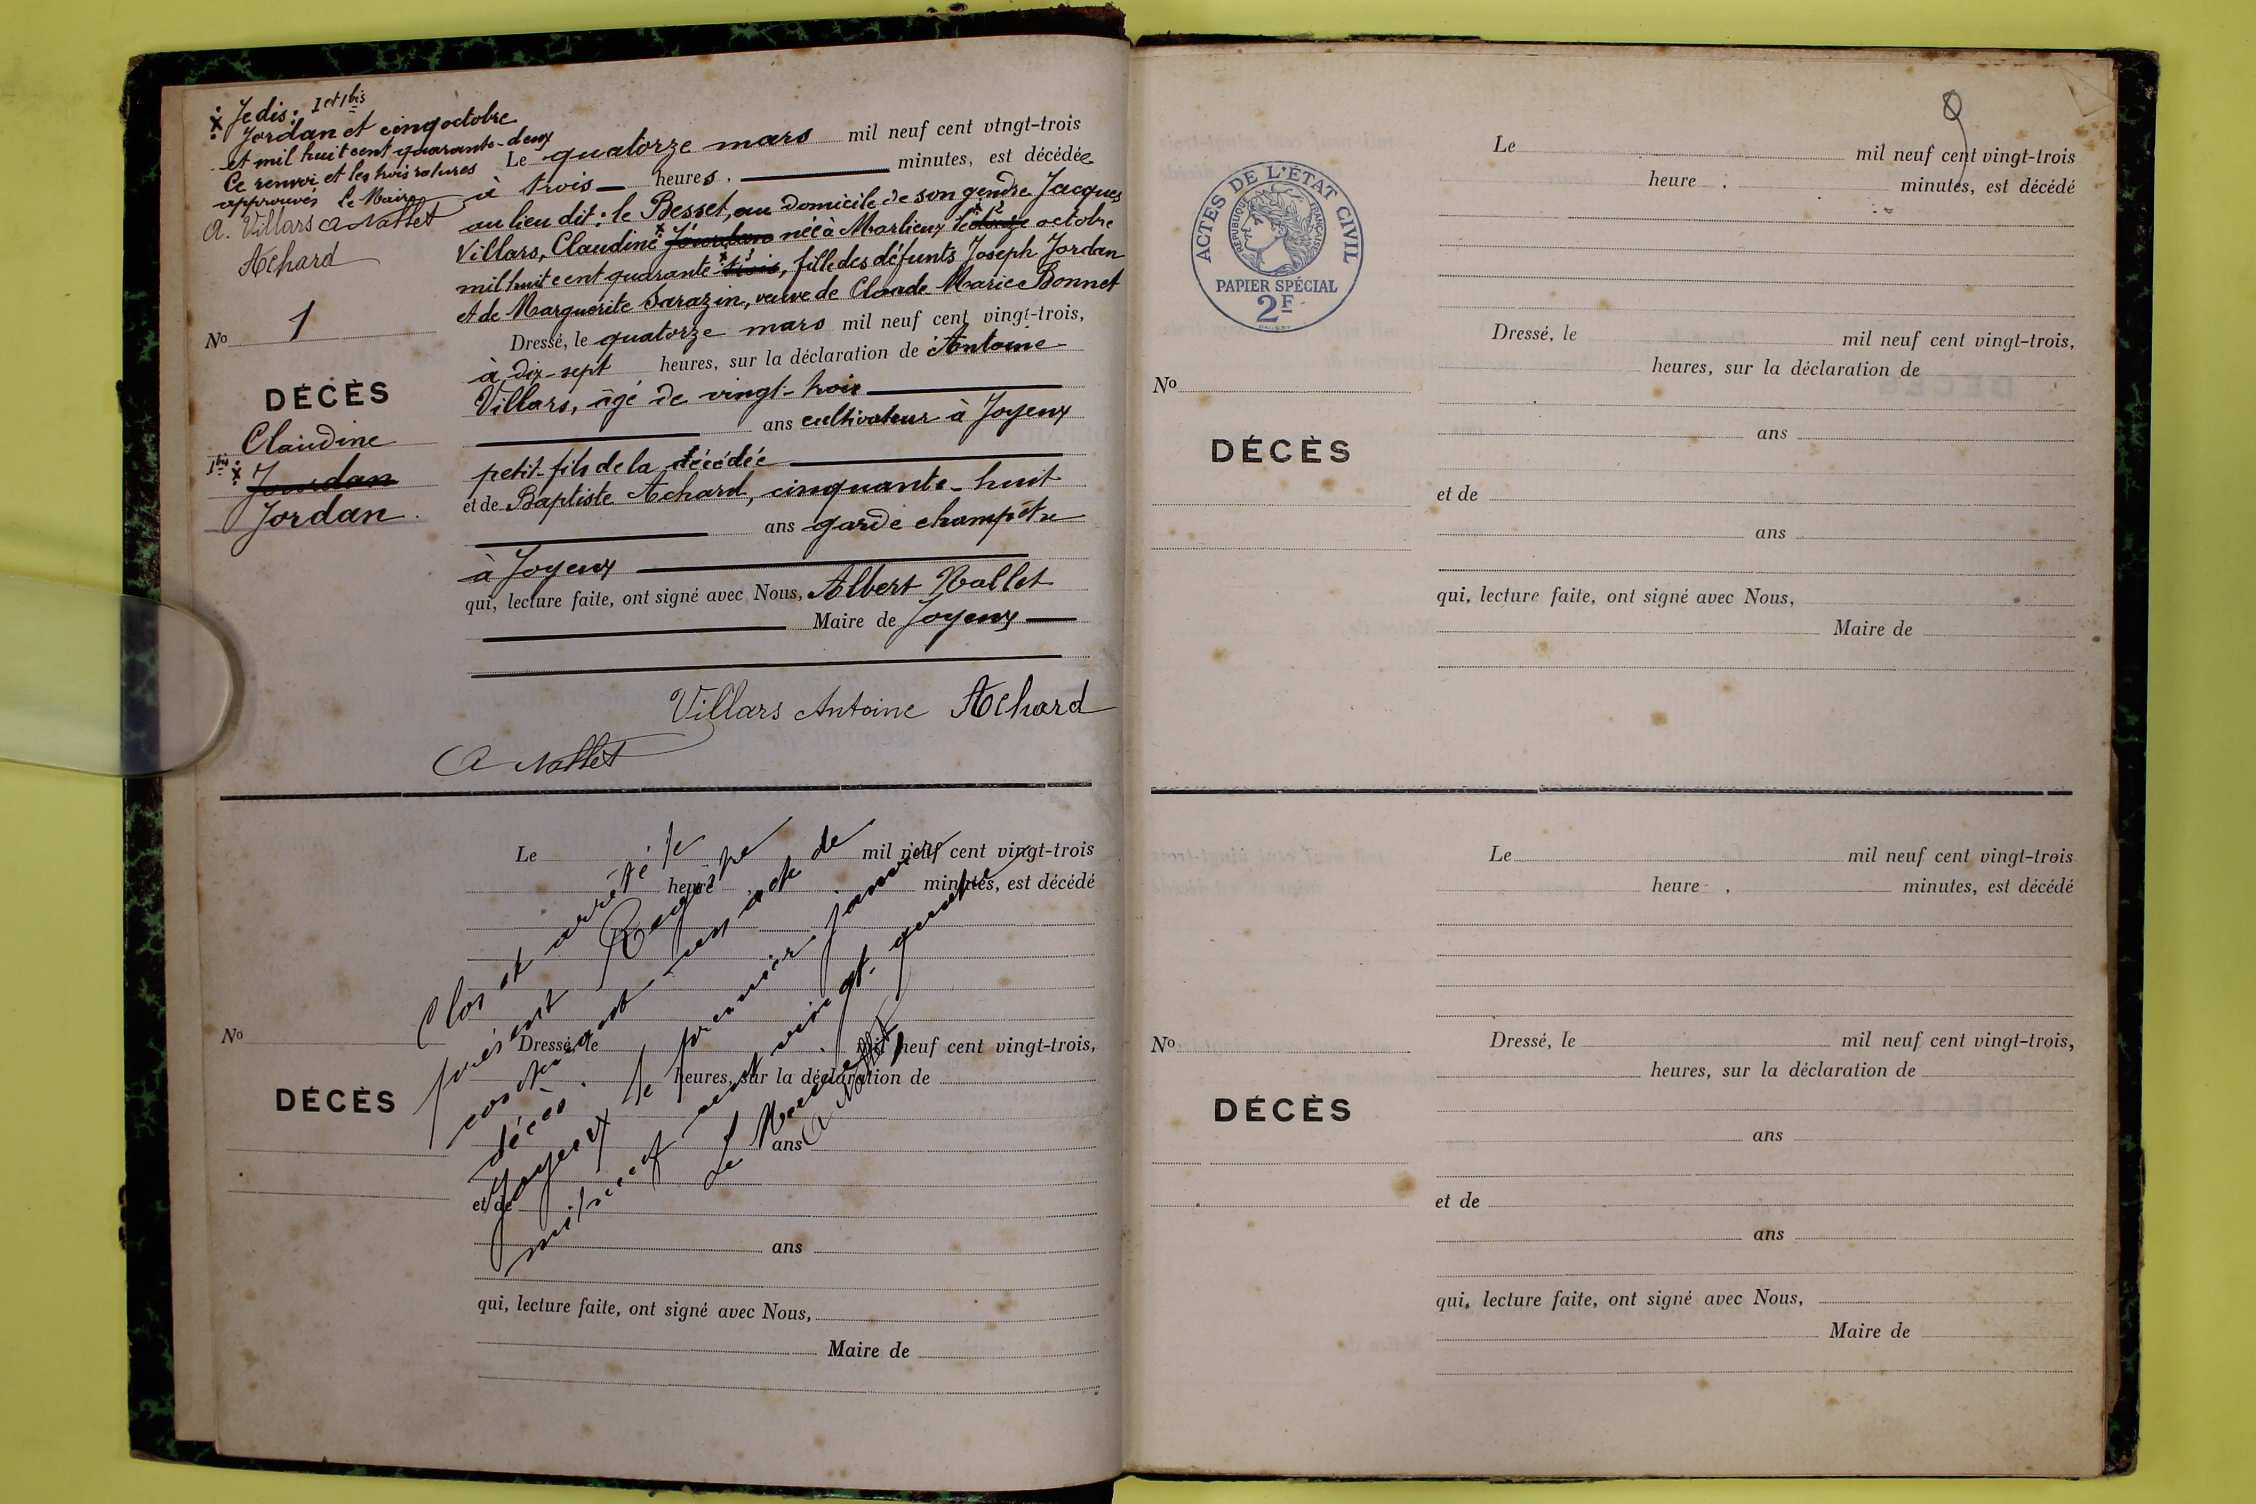 Je dis: 1 et 1bis
Jordan et cinq octobre
et mil huit cent quarante-deux
Ce renvoi et les trois ratures
approuvés le Maire
A. Villars A Nallet
Achard
No 1
DÉCÈS
Claudine
1bis Jourdan
Jordan
Le quatorze mars mil neuf cent vtngt-trois
à trois heures. minutes, est décédée
au lieu dit: le Besset, au domicile de son gendre Jacques
Villars, Claudine Jourdan née à Marlieux le octobre
mil huit cent quarante trois, fille des défunts Joseph Jordan
et de Marguérite Sarazin, veuve de Claude Marie Bonnet
Dressé, le quatorze mars mil neuf cent vingt-trois,
à dix-sept heures, sur la déclaration de Antoine
Villars, âgé de vingt-trois
ans cultivateur à Joyeux
petit-fils de la décédée
et de Baptiste Achard, cinquante-huit
ans garde champêtre
à Joyeux
qui, lecture faite, ont signé avec Nous, Albert Nallet
Maire de Joyeux
Villars Antoine Achard
A Nallet
Le mil neuf cent vingt-trois
heure minutes, est décédé
No
DÉCÈS
Dressé, le mil neuf cent vingt-trois,
heures, sur la déclaration de
ans
et de
ans
qui, lecture faite, ont signé avec Nous,
Maire de
Clos et arrêté le
présent Registre
contenant un acte de
décès.
Joyeux le premier janvier
mil neuf cent vingt-quatre
Le Maire
A Nallet
9
ACTES DE L'ÉTAT CIVIL
RÉPUBLIQUE FRANÇAISE
PAPIER SPÉCIAL
2F
Le mil neuf cent vingt-trois
heure . minutes, est décédé
No
DÉCÈS
Dressé, le mil neuf cent vingt-trois,
heures, sur la déclaration de
ans
et de
ans
qui, lecture faite, ont signé avec Nous,
Maire de
Le mil neuf cent vingt-trois
heure . minutes, est décédé
No
DÉCÈS
Dressé, le mil neuf cent vingt-trois,
heures, sur la déclaration de
ans
et de
ans
qui, lecture faite, ont signé avec Nous,
Maire de